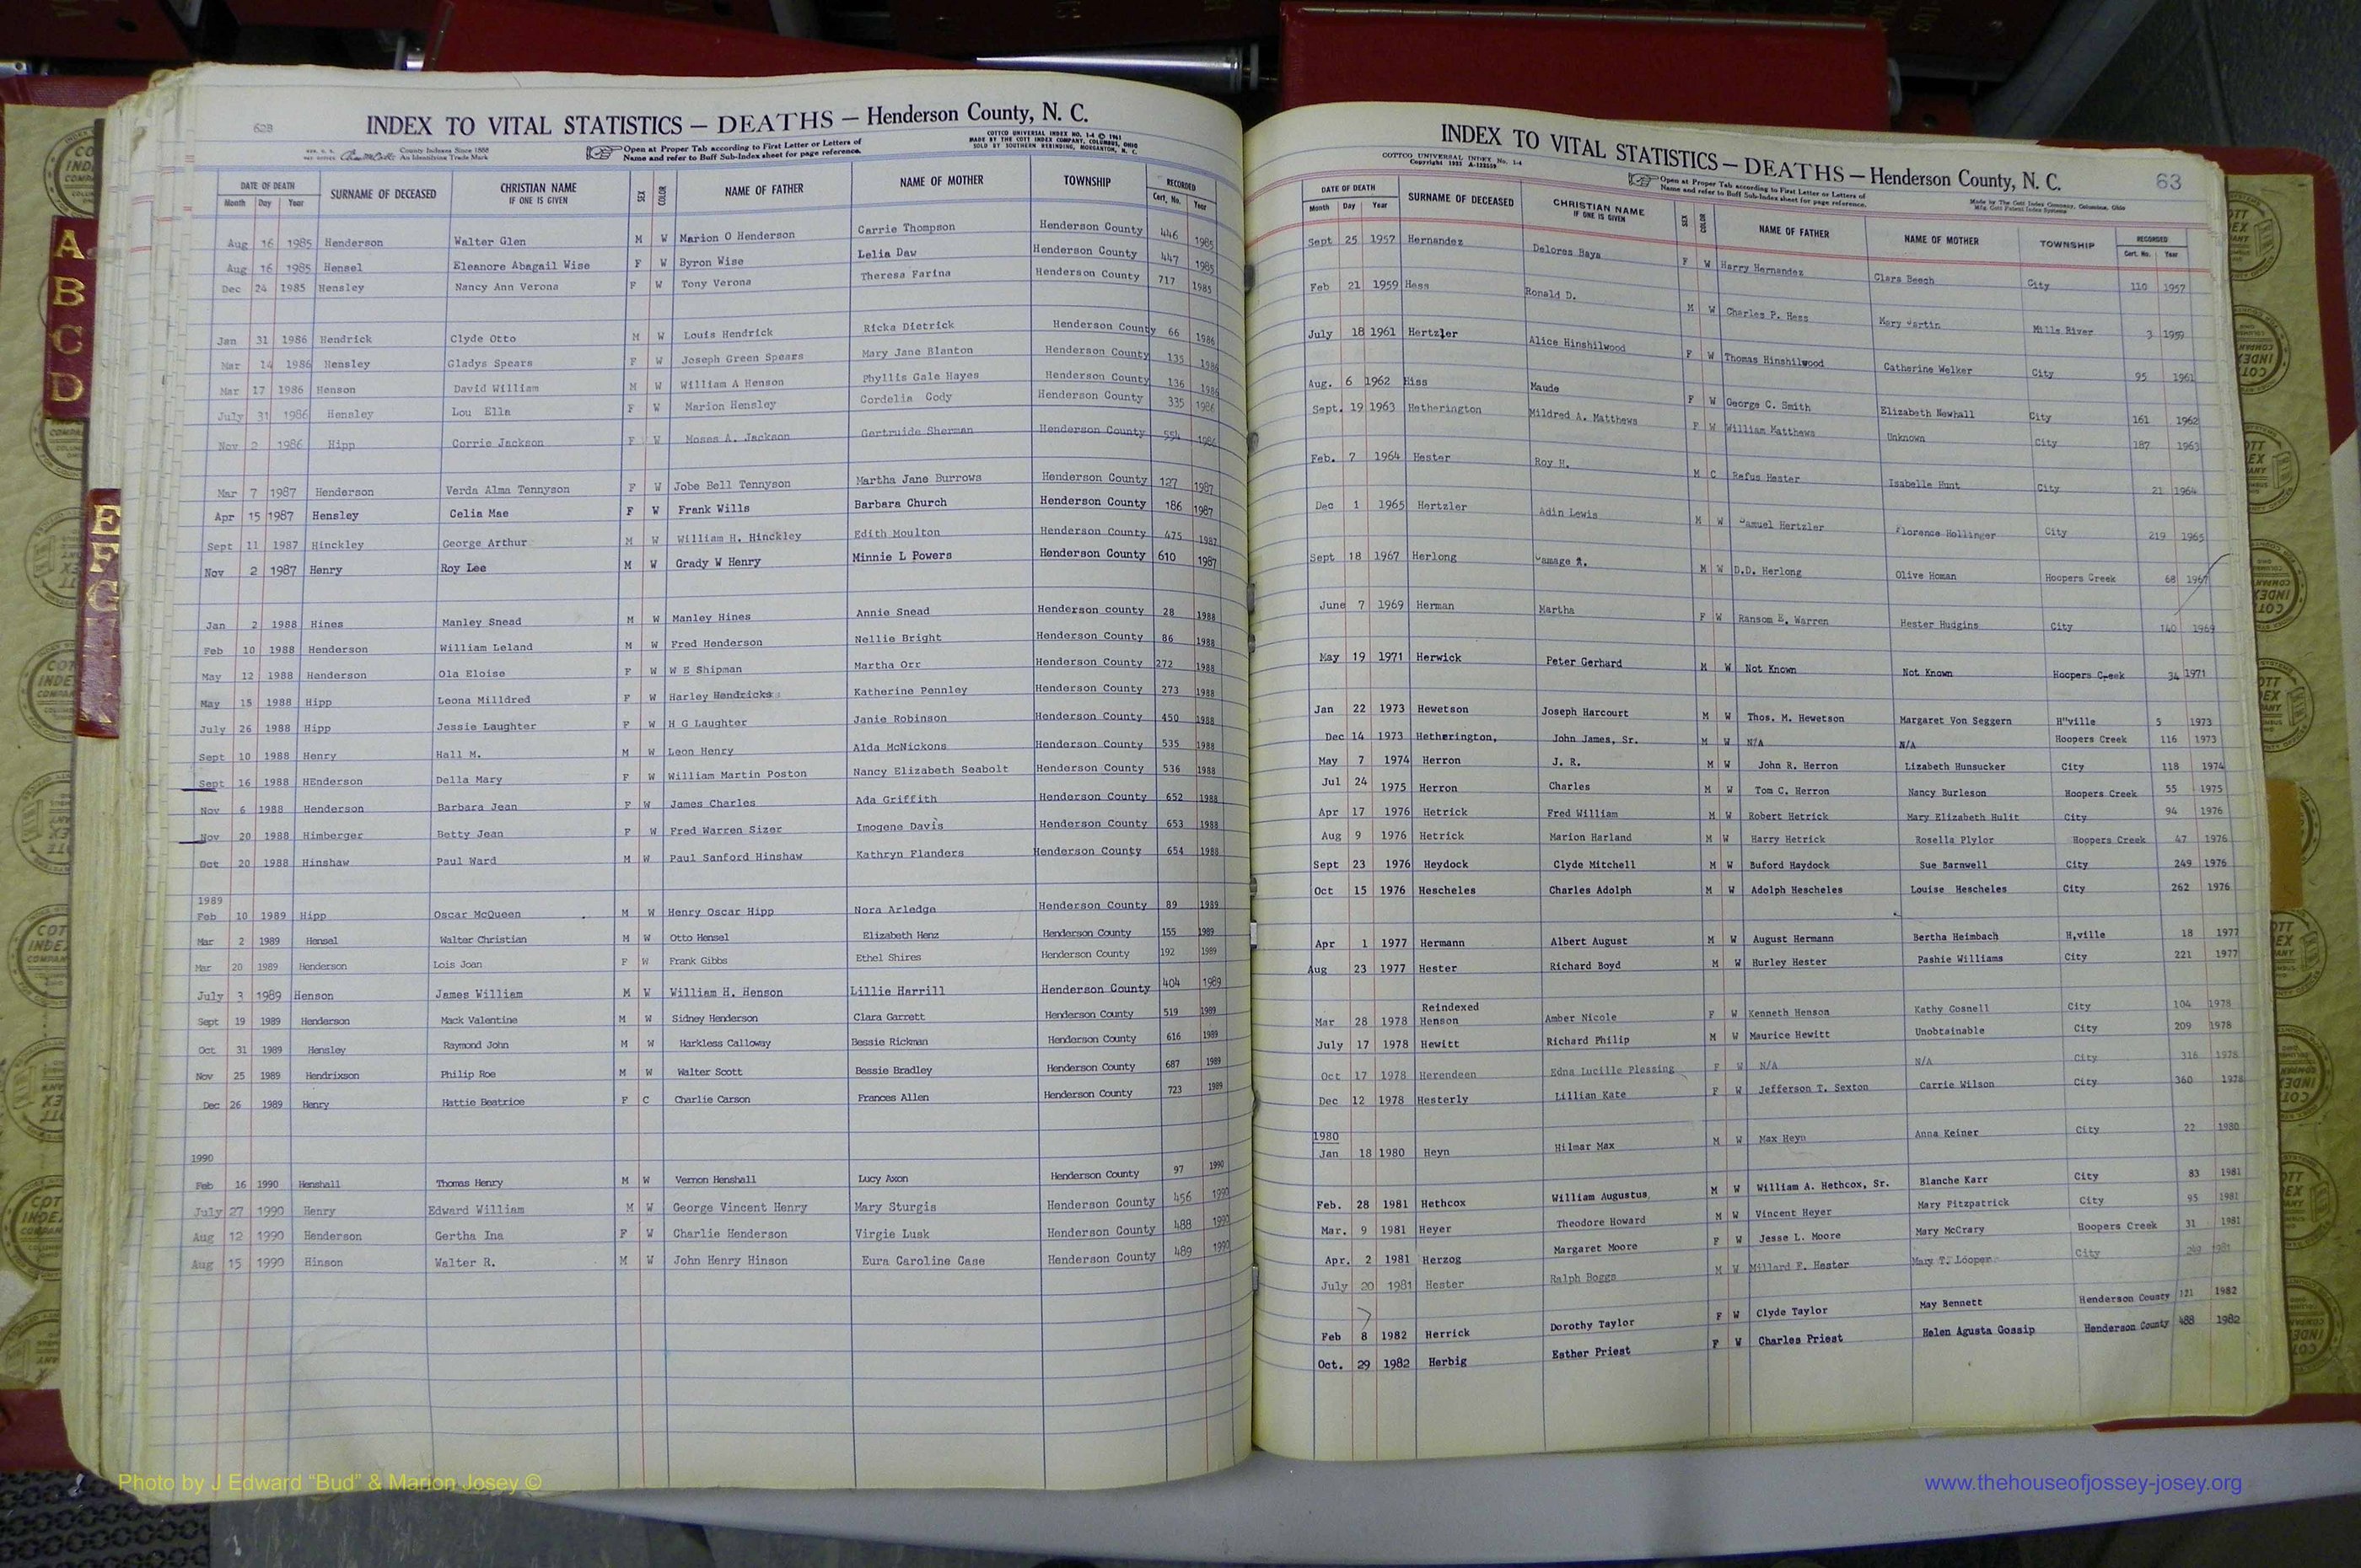 62B
INDEX TO VITAL STATISTICS — DEATHS — Henderson County, N. C.
County Indexes Since 1888
An Identifying Trade Mark
Open at Proper Tab according to First Letter or Letters of
Name and refer to Buff Sub-Index sheet for page reference.
COTTCO UNIVERSAL INDEX NO. 1-4 © 1961
MADE BY THE COTT INDEX COMPANY, COLUMBUS, OHIO
SOLD BY SOUTHERN REBINDING, MORGANTON, N. C.
DATE OF DEATH SURNAME OF DECEASED CHRISTIAN NAME IF ONE IS GIVEN SEX COLOR NAME OF FATHER NAME OF MOTHER TOWNSHIP RECORDED
Month Day Year Cert. No. Year
Aug 16 1985 Henderson Walter Glen M W Marion O Henderson Carrie Thompson Henderson County 446 1985
Aug 16 1985 Hensel Eleanore Abagail Wise F W Byron Wise Lelia Daw Henderson County 447 1985
Dec 24 1985 Hensley Nancy Ann Verona F W Tony Verona Theresa Farina Henderson County 717 1985
Jan 31 1986 Hendrick Clyde Otto M W Louis Hendrick Ricka Dietrick Henderson County 66 1986
Mar 14 1986 Hensley Gladys Spears F W Joseph Green Spears Mary Jane Blanton Henderson County 135 1986
Mar 17 1986 Henson David William M W William A Henson Phyllis Gale Hayes Henderson County 136 1986
July 31 1986 Hensley Lou Ella F W Marion Hensley Cordelia Cody Henderson County 335 1986
Nov 2 1986 Hipp Corrie Jackson F W Moses A. Jackson Gertruide Sherman Henderson County 554 1986
Mar 7 1987 Henderson Verda Alma Tennyson F W Jobe Bell Tennyson Martha Jane Burrows Henderson County 127 1987
Apr 15 1987 Hensley Celia Mae F W Frank Wills Barbara Church Henderson County 186 1987
Sept 11 1987 Hinckley George Arthur M W William H. Hinckley Edith Moulton Henderson County 475 1987
Nov 2 1987 Henry Roy Lee M W Grady W Henry Minnie L Powers Henderson County 610 1987
Jan 2 1988 Hines Manley Snead M W Manley Hines Annie Snead Henderson county 28 1988
Feb 10 1988 Henderson William Leland M W Fred Henderson Nellie Bright Henderson County 86 1988
May 12 1988 Henderson Ola Eloise F W W E Shipman Martha Orr Henderson County 272 1988
May 15 1988 Hipp Leona Milldred F W Harley Hendricks Katherine Pennley Henderson County 273 1988
July 26 1988 Hipp Jessie Laughter F W H G Laughter Janie Robinson Henderson County 450 1988
Sept 10 1988 Henry Hall M. M W Leon Henry Alda McNickons Henderson County 535 1988
Sept 16 1988 HEnderson Della Mary F W William Martin Poston Nancy Elizabeth Seabolt Henderson County 536 1988
Nov 6 1988 Henderson Barbara Jean F W James Charles Ada Griffith Henderson County 652 1988
Nov 20 1988 Himberger Betty Jean F W Fred Warren Sizer Imogene Davis Henderson County 653 1988
Oct 20 1988 Hinshaw Paul Ward M W Paul Sanford Hinshaw Kathryn Flanders Henderson County 654 1988
1989
Feb 10 1989 Hipp Oscar McQueen M W Henry Oscar Hipp Nora Arledge Henderson County 89 1989
Mar 2 1989 Hensel Walter Christian M W Otto Hensel Elizabeth Henz Henderson County 155 1989
Mar 20 1989 Henderson Lois Joan F W Frank Gibbs Ethel Shires Henderson County 192 1989
July 3 1989 Henson James William M W William H. Henson Lillie Harrill Henderson County 404 1989
Sept 19 1989 Henderson Mack Valentine M W Sidney Henderson Clara Garrett Henderson County 519 1989
Oct 31 1989 Hensley Raymond John M W Harkless Calloway Bessie Rickman Henderson County 616 1989
Nov 25 1989 Hendrixson Philip Roe M W Walter Scott Bessie Bradley Henderson County 687 1989
Dec 26 1989 Henry Hattie Beatrice F C Charlie Carson Frances Allen Henderson County 723 1989
1990
Feb 16 1990 Henshall Thomas Henry M W Vernon Henshall Lucy Axon Henderson County 97 1990
July 27 1990 Henry Edward William M W George Vincent Henry Mary Sturgis Henderson County 456 1990
Aug 12 1990 Henderson Gertha Ina F W Charlie Henderson Virgie Lusk Henderson County 488 1990
Aug 15 1990 Hinson Walter R. M W John Henry Hinson Eura Caroline Case Henderson County 489 1990
A
B
C
D
E
F
G
INDEX TO VITAL STATISTICS — DEATHS — Henderson County, N. C.
63
COTTCO UNIVERSAL INDEX No. 1-4
Open at Proper Tab according to First Letter or Letters of
Name and refer to Buff Sub-Index sheet for page reference.
Made by The Cott Index Company, Columbus, Ohio
DATE OF DEATH SURNAME OF DECEASED CHRISTIAN NAME IF ONE IS GIVEN SEX COLOR NAME OF FATHER NAME OF MOTHER TOWNSHIP RECORDED
Month Day Year Cert. No. Year
Sept 25 1957 Hernandez Delores Hays F W Harry Hernandez Clara Beech City 110 1957
Feb 21 1959 Hess Ronald D. M W Charles P. Hess Mary Martin Mills River 3 1959
July 18 1961 Hertzler Alice Hinshilwood F W Thomas Hinshilwood Catherine Welker City 95 1961
Aug. 6 1962 Hiss Maude F W George C. Smith Elizabeth Newhall City 161 1962
Sept. 19 1963 Hetherington Mildred A. Matthews F W William Matthews Unknown City 187 1963
Feb. 7 1964 Hester Roy H. M C Refus Hester Isabelle Hunt City 21 1964
Dec 1 1965 Hertzler Adin Lewis M W Samuel Hertzler Florence Hollinger City 219 1965
Sept 18 1967 Herlong Ramage R. M W D.D. Herlong Olive Homan Hoopers Creek 68 1967
June 7 1969 Herman Martha F W Ransom E. Warren Hester Hudgins City 140 1969
May 19 1971 Herwick Peter Gerhard M W Not Known Not Known Hoopers Creek 34 1971
Jan 22 1973 Hewetson Joseph Harcourt M W Thos. M. Hewetson Margaret Von Seggern H"ville 5 1973
Dec 14 1973 Hetherington, John James, Sr. M W N/A N/A Hoopers Creek 116 1973
May 7 1974 Herron J. R. M W John R. Herron Lizabeth Hunsucker City 118 1974
Jul 24 1975 Herron Charles M W Tom C. Herron Nancy Burleson Hoopers Creek 55 1975
Apr 17 1976 Hetrick Fred William M W Robert Hetrick Mary Elizabeth Hulit City 94 1976
Aug 9 1976 Hetrick Marion Harland M W Harry Hetrick Rosella Plylor Hoopers Creek 47 1976
Sept 23 1976 Heydock Clyde Mitchell M W Buford Haydock Sue Barnwell City 249 1976
Oct 15 1976 Hescheles Charles Adolph M W Adolph Hescheles Louise Hescheles City 262 1976
Apr 1 1977 Hermann Albert August M W August Hermann Bertha Heimbach H,ville 18 1977
Aug 23 1977 Hester Richard Boyd M W Hurley Hester Pashie Williams City 221 1977
Reindexed
Mar 28 1978 Henson Amber Nicole F W Kenneth Henson Kathy Gosnell City 104 1978
July 17 1978 Hewitt Richard Philip M W Maurice Hewitt Unobtainable City 209 1978
Oct 17 1978 Herendeen Edna Lucille Plessing F W N/A N/A City 316 1978
Dec 12 1978 Hesterly Lillian Kate F W Jefferson T. Sexton Carrie Wilson City 360 1978
1980
Jan 18 1980 Heyn Hilmar Max M W Max Heyn Anna Keiner City 22 1980
Feb. 28 1981 Hethcox William Augustus M W William A. Hethcox, Sr. Blanche Karr City 83 1981
Mar. 9 1981 Heyer Theodore Howard M W Vincent Heyer Mary Fitzpatrick City 95 1981
Apr. 2 1981 Herzog Margaret Moore F W Jesse L. Moore Mary McCrary Hoopers Creek 31 1981
July 20 1981 Hester Ralph Boggs M W Millard F. Hester Mary T. Looper City 1981
Feb 8 1982 Herrick Dorothy Taylor F W Clyde Taylor May Bennett Henderson County 121 1982
Oct. 29 1982 Herbig Esther Priest F W Charles Priest Helen Agusta Gossip Henderson County 488 1982
Photo by J Edward "Bud" & Marion Josey ©
www.thehouseofjossey-josey.org